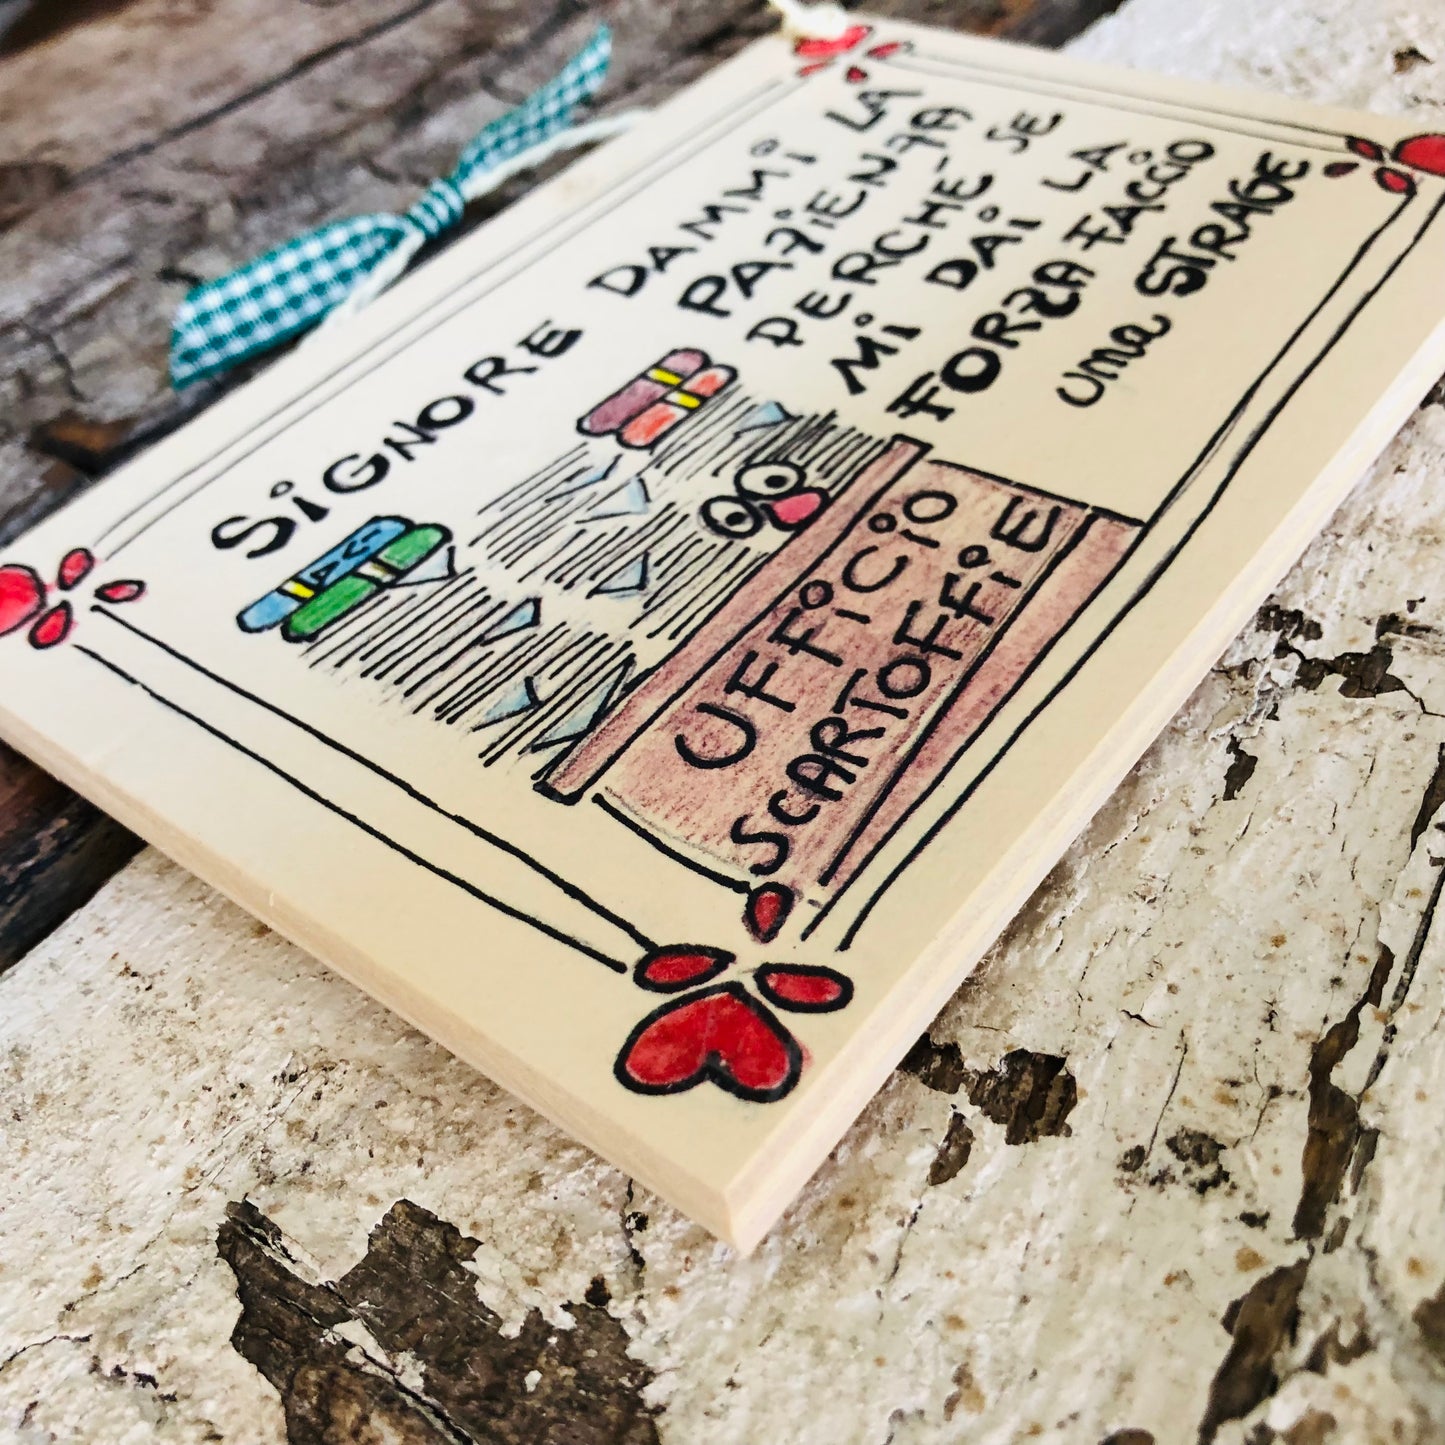 SiGNORE DAMMi LA
PAZIENZA
PERCHE' SE
Mi DAi LA
FORZA FACCiO
Una STRAGE
UFFiCiO
SCARTOFFiE